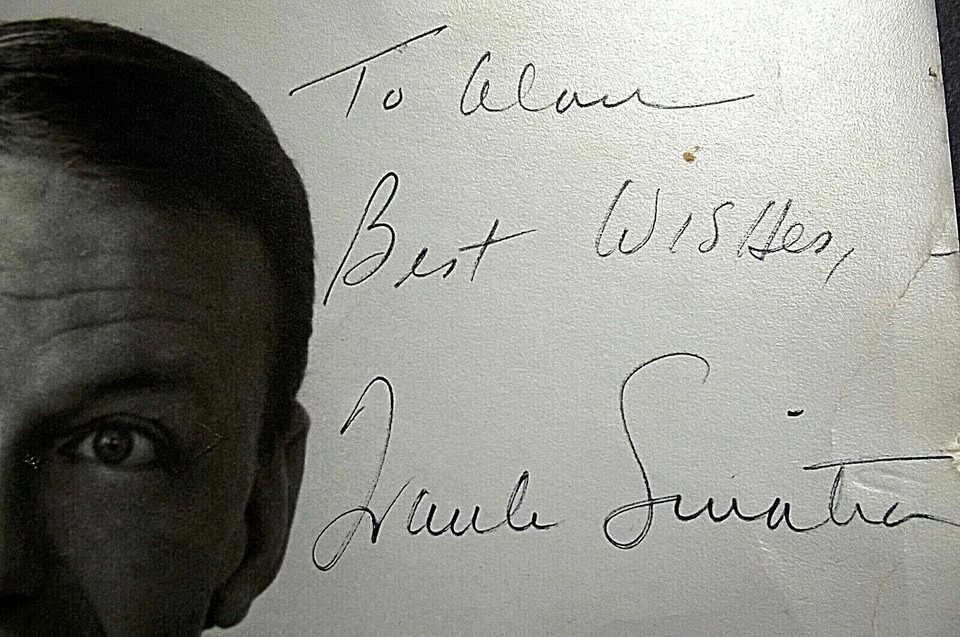 To Alan
Best Wishes,
Frank Sinatra